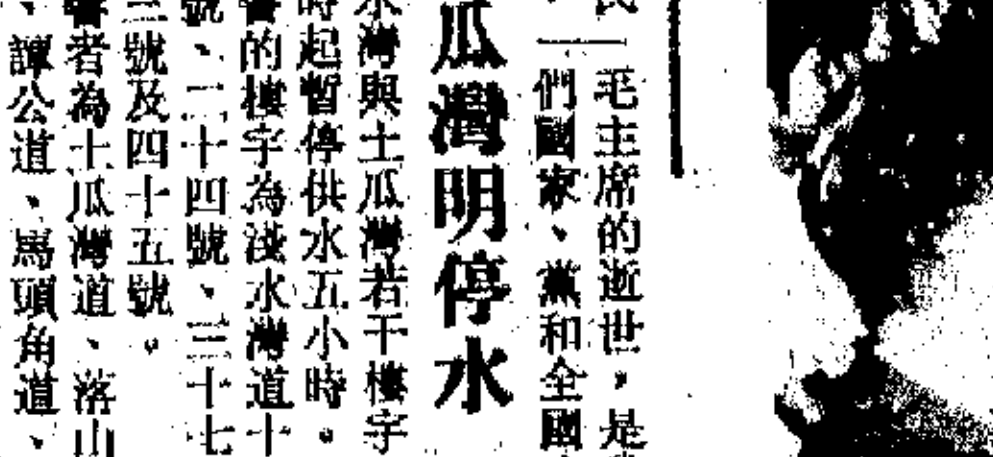 毛主席的逝世，是
們國家、黨和全國
瓜灣明停水
水灣與土瓜灣若干樓宇
時起暫停供水五小時。
的樓宇為淺水灣道十
號、二十四號、三十七
三號及四十五號。
者為土瓜灣道、落山
、譚公道、馬頭角道、